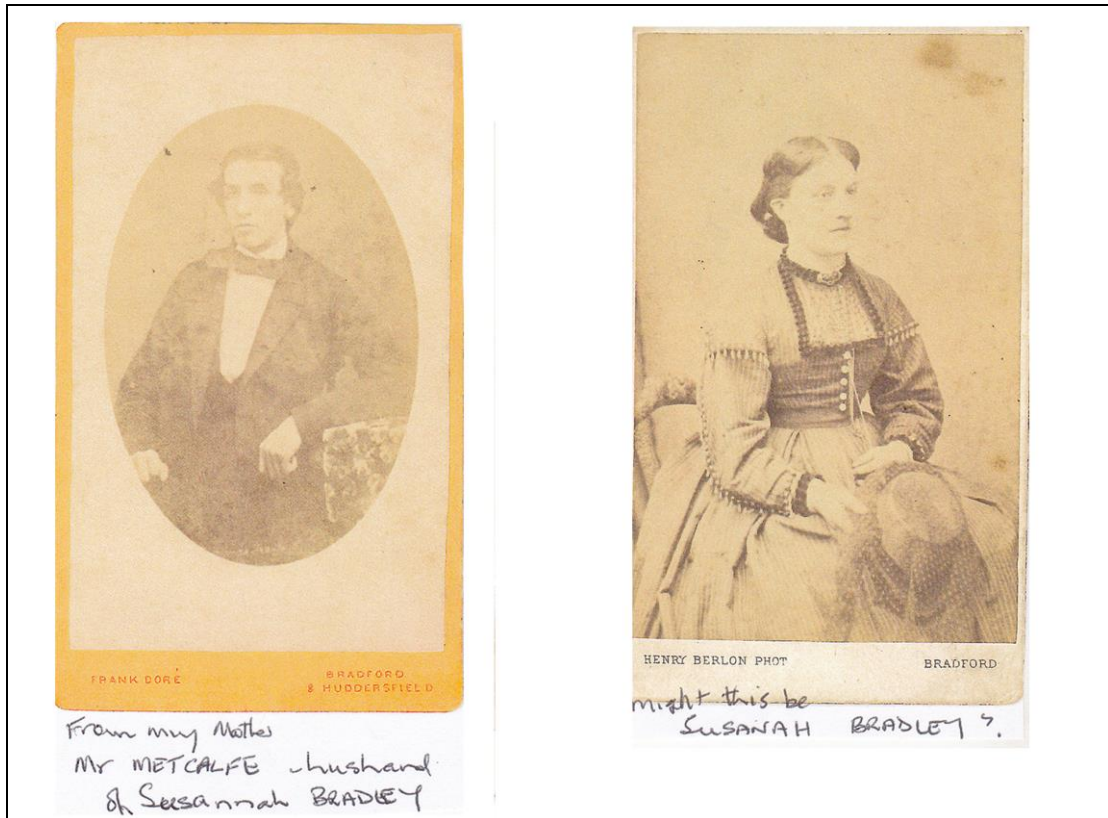 FRANK DORÉ
BRADFORD
& HUDDERSFIELD
From my Mother
Mr METCALFE - husband
of Susannah BRADLEY
HENRY BERLON PHOT BRADFORD
might this be
SUSANAH BRADLEY ?.